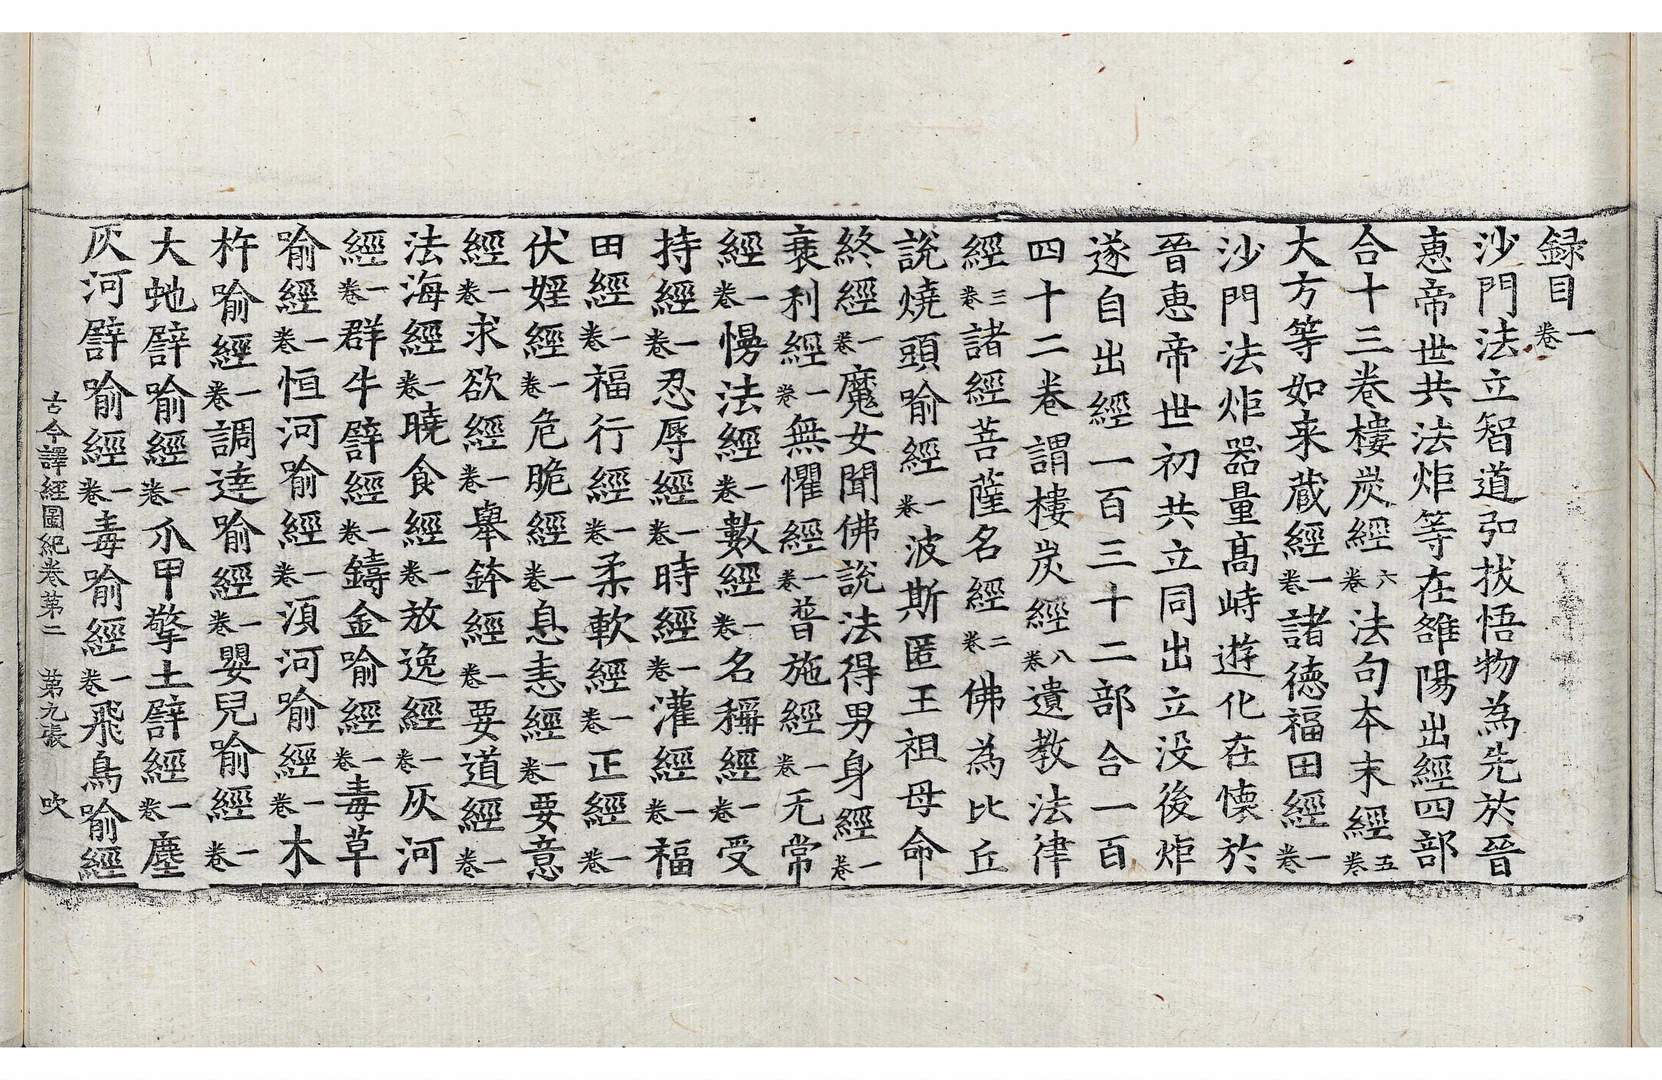 録目一卷
沙門法立智道弘拔悟物為先於晉
惠帝世共法炬等在雒陽出經四部
合十三卷樓炭經六卷法句本末經五卷
大方等如来蔵經一卷諸徳福田經一卷
沙門法炬器量髙峙遊化在懐於
晉恵帝世初共立同出立没後炬
遂自出經一百三十二部合一百
四十二卷謂樓炭經八卷遺教法律
經三卷諸經菩薩名經二卷佛為比丘
說燒頭喻經一卷波斯匿王祖母命
終經一卷魔女聞佛說法得男身經一卷
衰利經一卷無懼經一卷普施經一卷无常
經一卷慢法經一卷數經一卷名稱經一卷受
持經一卷忍辱經一卷時經一卷灌經一卷福
田經一卷福行經一卷柔軟經一卷正經一卷
伏婬經一卷危脆經一卷息恚經一卷要意
經一卷求欲經一卷舉鉢經一卷要道經一卷
法海經一卷曉食經一卷放逸經一卷灰河
經一卷群牛譬經一卷鑄金喻經一卷毒草
喻經一卷恒河喻經一卷湏河喻經一卷木
杵喻經一卷調達喻經一卷嬰兒喻經一卷
大虵譬喻經一卷爪甲擎土譬經一卷塵
灰河譬喻經一卷毒喻經一卷飛鳥喻經
古今譯經圖紀卷第二　第九張　吹